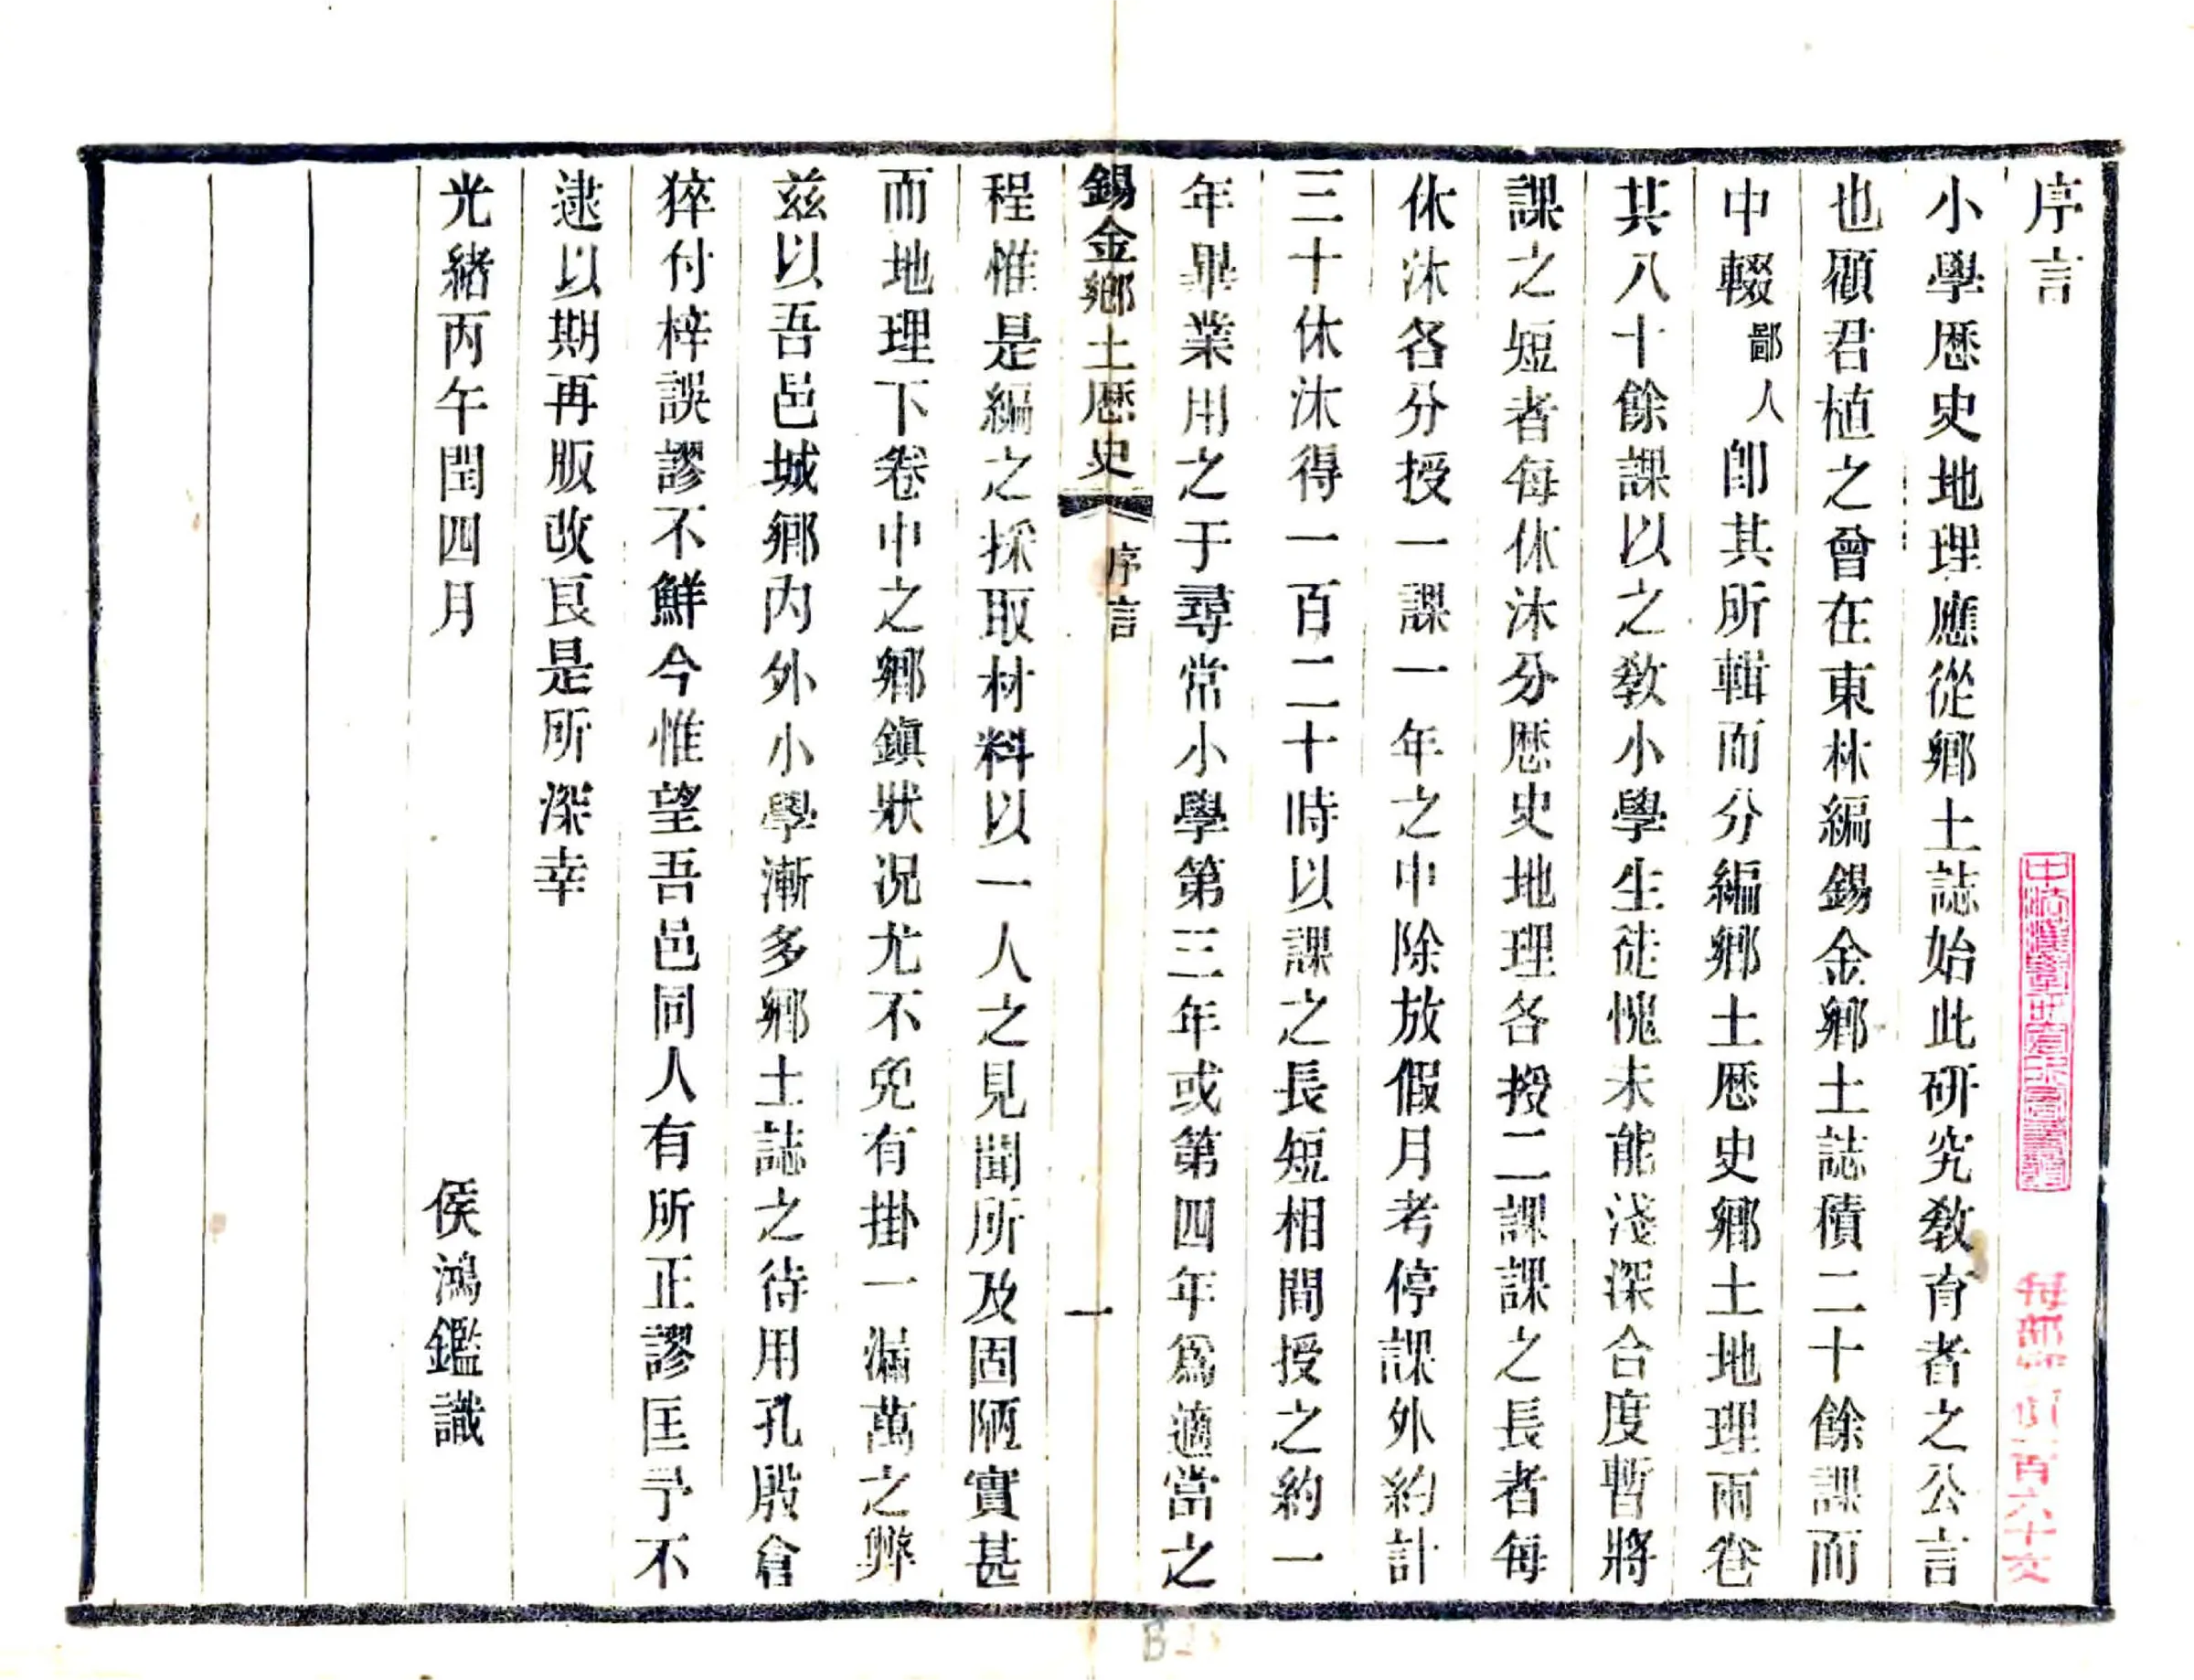 序言
小學歴史地理應從鄉土誌始此研究教育者之公言
也顧君植之曾在東林編錫金鄉土誌積二十餘課而
中輟鄙人卽其所輯而分編鄉土歴史鄉土地理兩卷
其八十餘課以之教小學生徒愧未能淺深合度暫將
課之短者每休沐分歴史地理各授二課課之長者每
休沐各分授一課一年之中除放假月考停課外約計
三十休沐得一百二十時以課之長短相間授之約一
年畢業用之于尋常小學第三年或第四年爲適當之
錫金鄉土歴史 序言 一
程惟是編之採取材料以一人之見聞所及固陋實甚
而地理下卷中之鄉鎭狀况尤不免有掛一漏萬之弊
兹以吾邑城鄉內外小學漸多鄉土誌之待用孔殷倉
猝付梓誤謬不鮮今惟望吾邑同人有所正謬匡予不
逮以期再版改良是所深幸
光緒丙午閏四月 侯鴻鑑識
百六十文